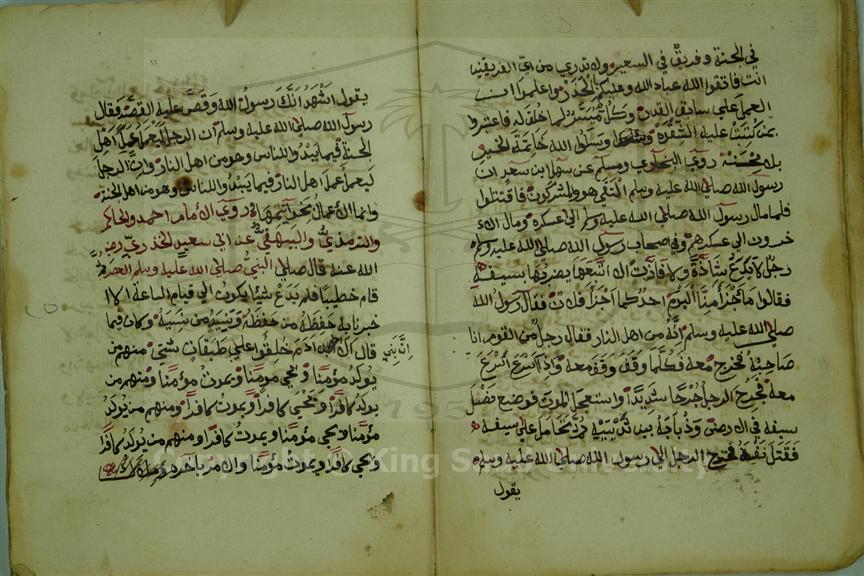 في الجنة وفريق في السعير ولا تدري من اي الفريقين
انت فاتقوا الله عباد الله وعليكم بالحذر واعلموا ان
العمل علي سابق القدر وكل ميسر لما خلق له فاعتبروا
بمن كتبت عليه الشقوه وسلوا الله خاتمة الخير
بمنه روي البخاري ومسلم عن سهل ابن سعد ان
رسول الله صلي الله عليه وسلم التقي هو والمشركون فاقتتلوا
فلما مال رسول الله صلي الله عليه وسلم الي عسكره ومال الاء
خرون الي عسكرهم وفي اصحاب رسول الله صلي الله عليه وسلم
رجل لا يدع شاذة ولا فاذة الا اتبعها يضربها بسيفه
فقالوا ما اجزأ منا اليوم احد كما اجزأ فلان فقال رسول الله
صلي الله عليه وسلم انه من اهل النار فقال رجل من القوم انا
صاحبه فخرج معه فكلما وقف وقف معه واذا اسرع اسرع
معه فجرح الرجل جرحا شديدا واستعجل الموت فوضع نصل
سيفه في الارض وذبابه بين ثدييه ثم تحامل علي سيفه
فقتل نفسه فخرج الرجل الي رسول الله صلي الله عليه وسلم
يقول
يقول اشهد انك رسول الله وقص عليه القصه فقال
رسول الله صلي الله عليه وسلم ان الرجل ليعمل عمل اهل
الجنة فيما يبدوا للناس وهو من اهل النار وان الرجل
ليعمل عمل اهل النار فيما يبدو للناس وهو من اهل الجنة
وانما الاعمال بخواتيمها وروي الامام احمد والحاكم
والترمذي والبيهقي عن ابي سعيد الخدري رضي
الله عنه قال صلي النبي صلي الله عليه وسلم العصر ثم
قام خطيبا فلم يدع شيئا يكون الي قيام الساعة الا
خبرنا به حفظه من حفظه ونسيه من نسيه وكان فيما
قال الا ان بني ادم خلقوا علي طبقات شتي منهم من
يولد مؤمنا ويحيي مومنا ويموت مؤمنا ومنهم من
يولد كافرا ويحيي كافرا ويموت كافرا ومنهم من يولد
مؤمنا ويحيي مومنا ويموت كافرا ومنهم من يولد كافرا
ويحيي كافرا ويموت مؤمنا والامر بآخره
Copyright © King Saud University
1957